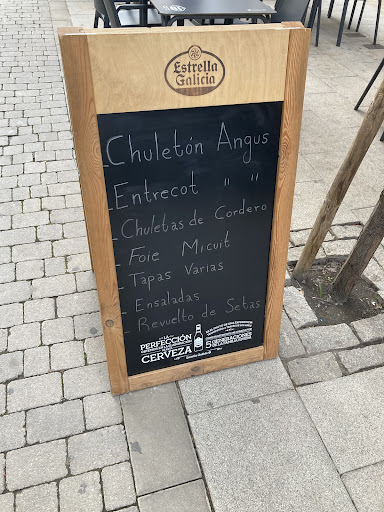 Estrella
Galicia
- Chuletón Angus
- Entrecot " "
- Chuletas de Cordero
- Foie Micuit
- Tapas Varias
- Ensaladas
- Revuelto de Setas
PERFECCIÓN
CERVEZA
5 GENERACIONES